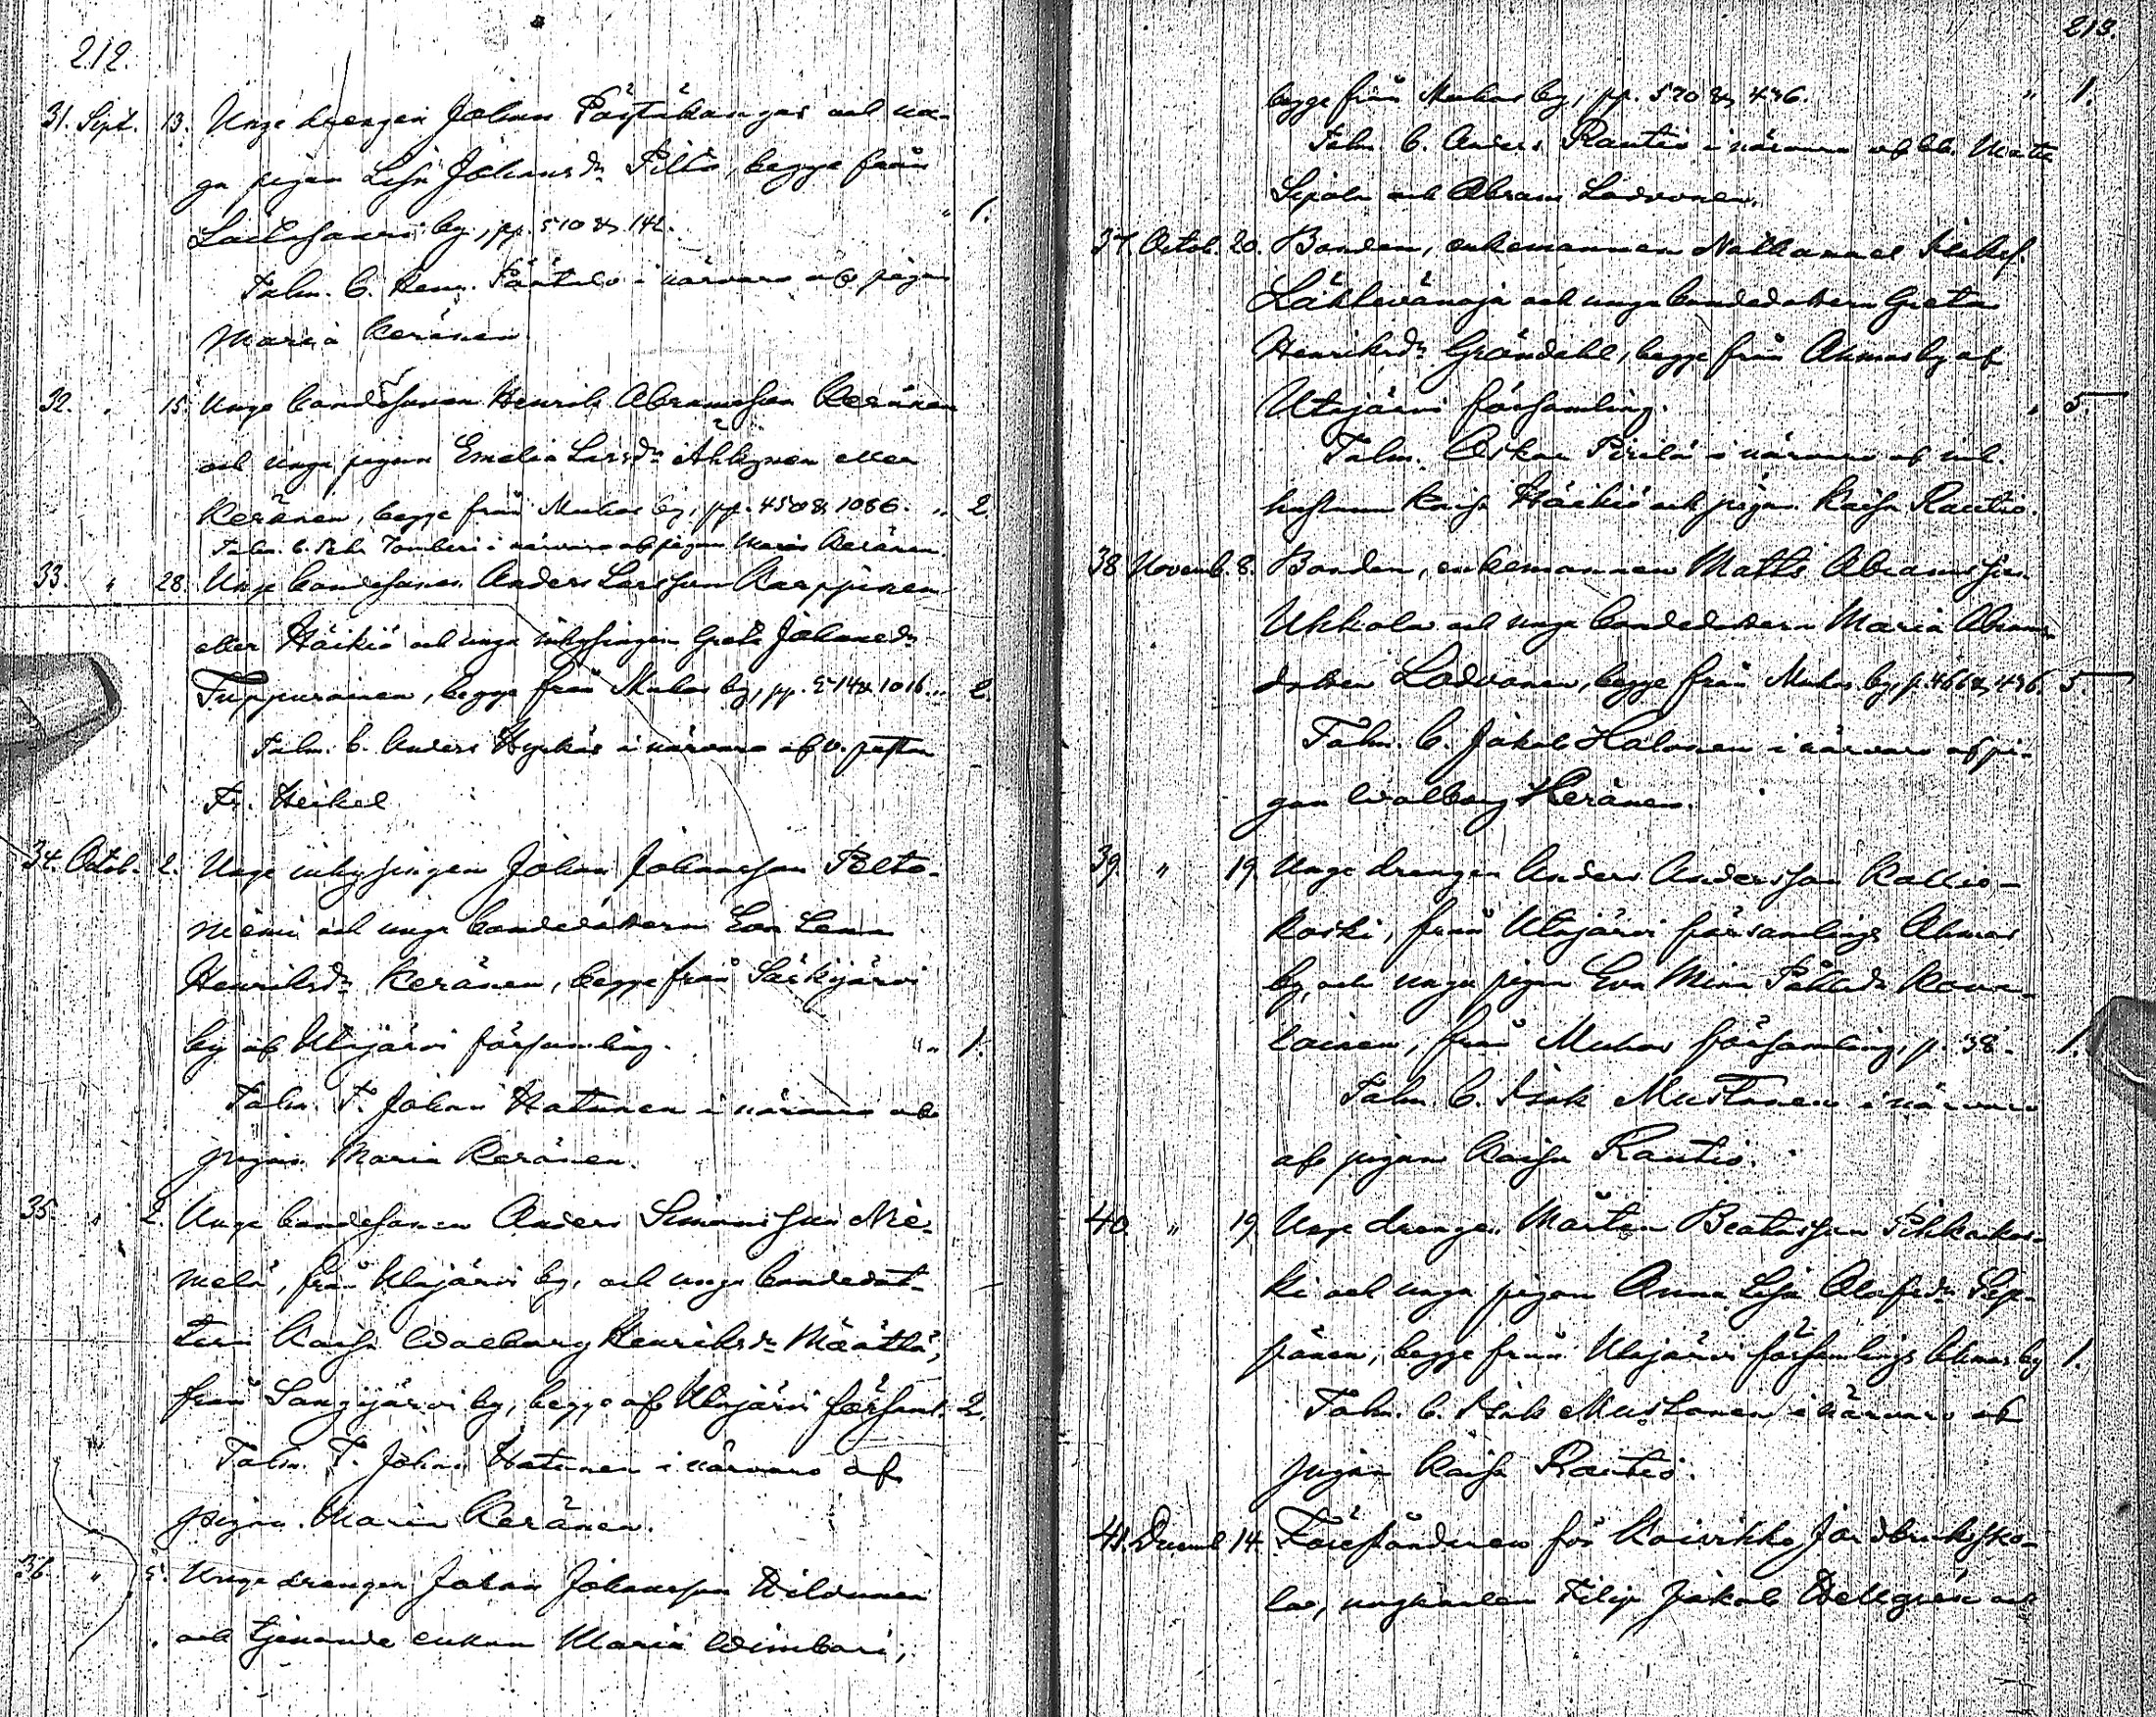 212.
31. Sept. 13. Unge drengen Johan Pöytäkangas och un-
ga pigan Lisa Johansdr Pilto, begge från
Laitasaari by, pp. 510 & 142. " 1.
Talm. b. Henr. Päätalo i närvaro af pigan
Maria Keränen.
32. " 15. Unge bondesonen Henrik Abramsson Keränen
och unga pigan Emelia Larsdr Ahlqren eller
Keränen, begge från Muhos by, pp. 450 & 1086. " 2.
Talm. b. Petr Tomberi i närvaro af pigan Maria Keränen.
33. " 28. Unge bondesonen Anders Larsson Karppinen
eller Häikiö och unga inhysingen Greta Johansdr
Tuppurainen, begge från Muhos by, pp. 514 & 1016. " 2.
Talm. b. Anders Hyrkäs i närvaro af v. pastor
Fr. Heikel
34. Octob. 2. Unge inhysingen Johan Johansson Pelto-
niemi och unga bondedottern Eva Lena
Henriksdr Keränen, begge från Särkijärvi
by af Utajärvi församling. " " 1.
Talm. T. Johan Hatunen i närvaro af
pigan Maria Keränen.
35. " 2. Unge bondesonen Anders Simonsson Nie-
melä, från Utajärvi by, och unga bondedot-
tern Kaisa Walborg Henriksdr Määttä,
från Sangijärvi by, begge af Utajärvi församl. 2.
Talm. T. Johan Hatunen i närvaro af
pigan Maria Keränen.
36. " 5. Unge drengen Johan Johansson Wildunen
och tjenande enkan Maria Wimbari,
213.
begge från Muhos by, pp. 520 & 436. " 1.
Talm. b. Anders Rautio i närvaro af bb. Matts
Sipola och Abram Lodvonen.
37. Octob. 20. Bonden, enkemannen Nathanael
Lähtevänoja och unga bondedottern Greta
Henriksdr Gröndahl, begge från Ahmas by af
Utajärvi församling. " 5.
Talm. Oskar Pirilä i närvaro af inh.
hustrun Kaisa Häikiö och pigan Kaisa Rautio.
38. Novemb. 8. Bonden, enkemannen Matts Abramsson
Ukkola och unga bondedottern Maria Abrams-
dotter Lodvonen, begge från Muhos by, p. 466 & 436. 5.
Talm. b. Jakob Halonen i närvaro af pi-
gan Walborg Keränen.
39. " 19. Unge drengen Anders Andersson Kallio-
koski, från Utajärvi församlings Ahmas
by, och unga pigan Eva Mina Påhlsdr Kova-
lainen, från Muhos församling, p. 38. 1.
Talm. b. Isak Mustonen i närvaro
af pigan Kaisa Rautio.
40. " 19. Unge drengen Mårten Beatasson Pikkarkos-
ki och unga pigan Anna Lisa Olofsdr Sep-
pänen, begge från Utajärvi församlings Ahmas by 1.
Talm. b. Isak Mustonen i närvaro af
pigan Kaisa Rautio.
41. Decemb. 14. Föreståndaren för Koivikko Jordbruksko-
la, ungkarlen Filip Jakob Hellgrén och